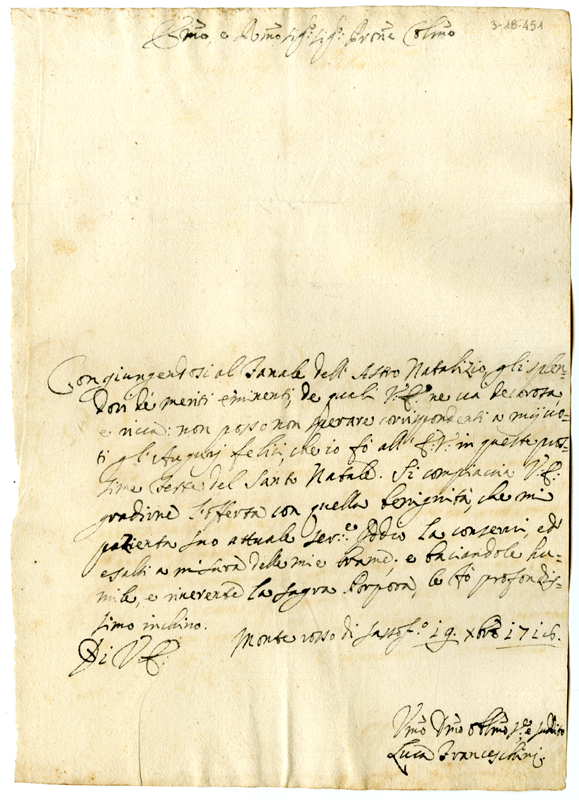 3-18-451
Em̃o, e Rm̃o Sig.r Sig.r Prone Colm̃o
Congiungendosi al Fanale dell'Astro Natalizio, gli splen-
dori de meriti eminenti, de quali V. E. ne va decorosa
e ricca: non posso non sperare corrispondenti a miei vo-
ti gl'Augurj felici, che io fò all'E. V. in queste pros-
sime Feste del Santo Natale. Si compiaccia V. E.
gradirne l'offerta con quella benignità, che mi
patenta suo attuale Ser.re Iddio la conservi, ed
esalti a misura delle mie brame: e baciandole hu-
mile, e riverente la sagra Porpora, le fò profondis-
simo inchino.
Di V. E.
Monte rosso di Sassof.o 19. Xbre 1716.
Vm̃o Dm̃o Obm̃o S.re e suddito
Luca Franceschini